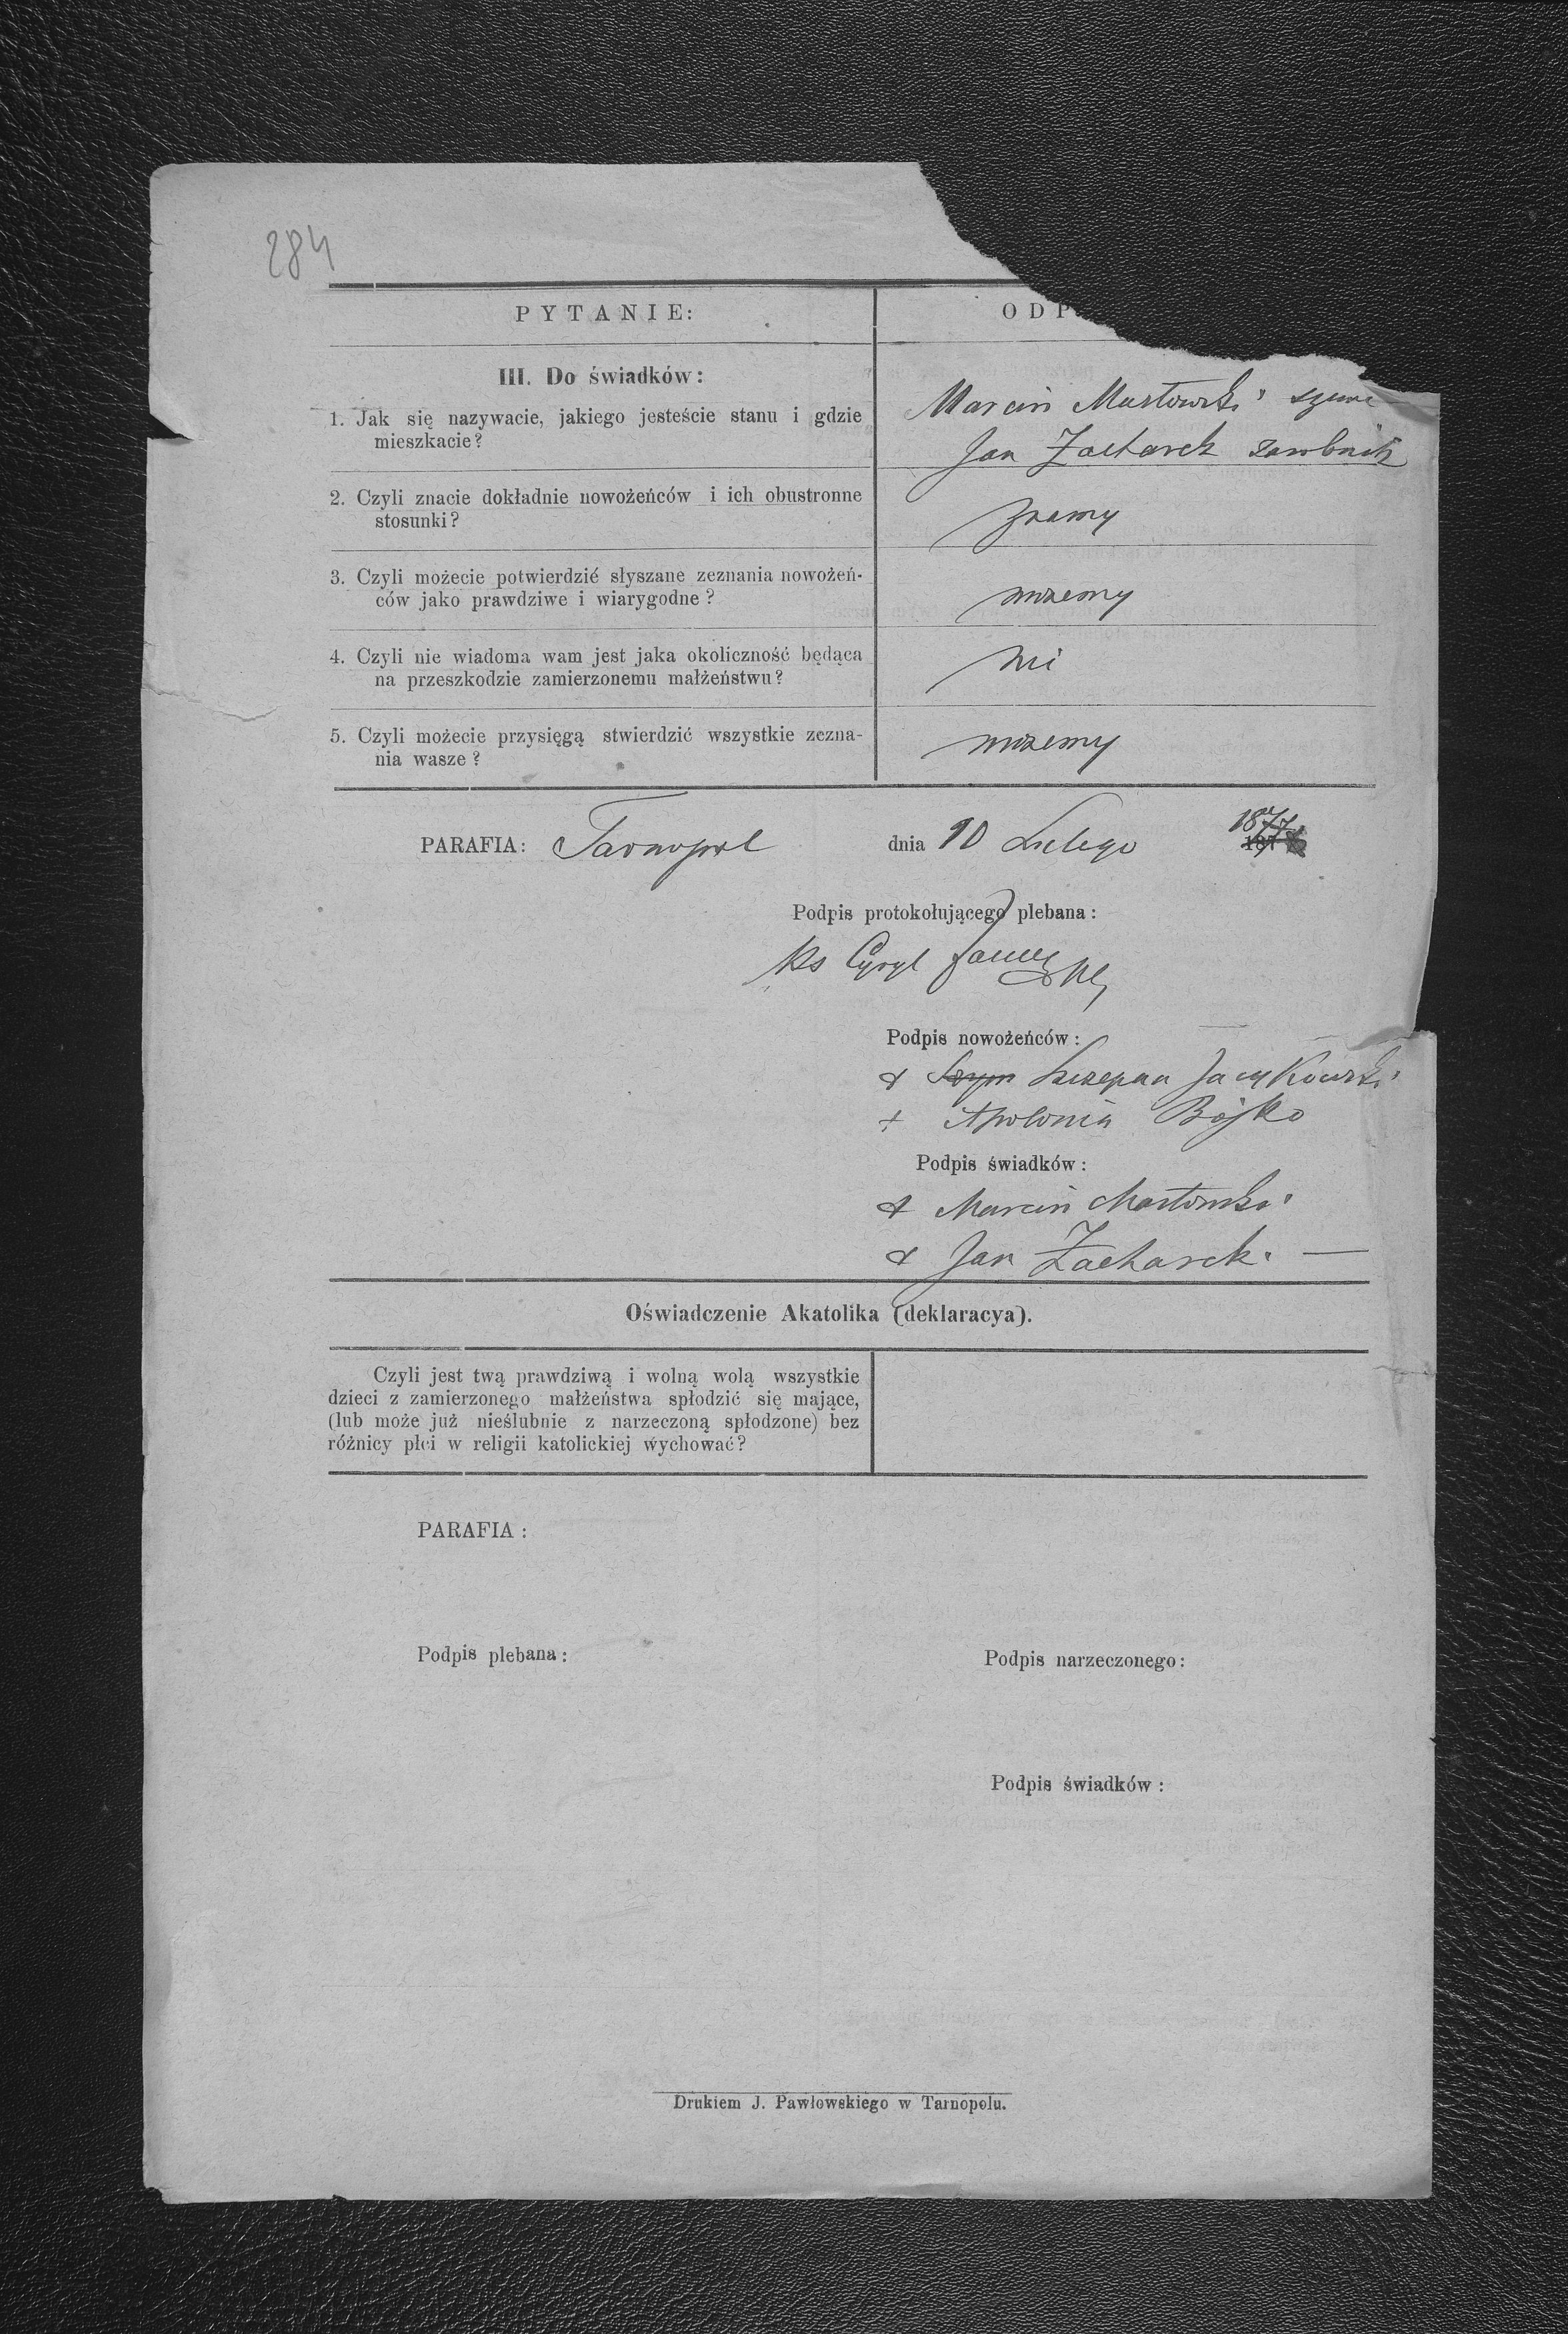 284
PYTANIE:
ODP
III. Do świadków:
1. Jak się nazywacie, jakiego jesteście stanu i gdzie
mieszkacie?
Marcin Martowski
Jan Zacharek zarobnik
2. Czyli znacie dokładnie nowożeńców i ich obustronne
stosunki?
znamy
3. Czyli możecie potwierdzić słyszane zeznania nowożeń-
ców jako prawdziwe i wiarygodne?
możemy
4. Czyli nie wiadoma wam jest jaka okoliczność będąca
na przeszkodzie zamierzonemu małżeństwu?
nie
5. Czyli możecie przysięgą stwierdzić wszystkie zezna-
nia wasze?
możemy
PARAFIA: Tarnopol dnia 10 Lutego 1877
Podpis protokołującego plebana:
Ks Cyryl
Podpis nowożeńców:
+ Szym Szczepan Jacykowski
+ Apolonia Bojko
Podpis świadków:
+ Marcin Martowski
+ Jan Zacharek. —
Oświadczenie Akatolika (deklaracya).
Czyli jest twą prawdziwą i wolną wolą wszystkie
dzieci z zamierzonego małżeństwa spłodzić się mające,
(lub może już nieślubnie z narzeczoną spłodzone) bez
różnicy płci w religii katolickiej wychować?
PARAFIA:
Podpis plebana:
Podpis narzeczonego:
Podpis świadków:
Drukiem J. Pawłowskiego w Tarnopolu.